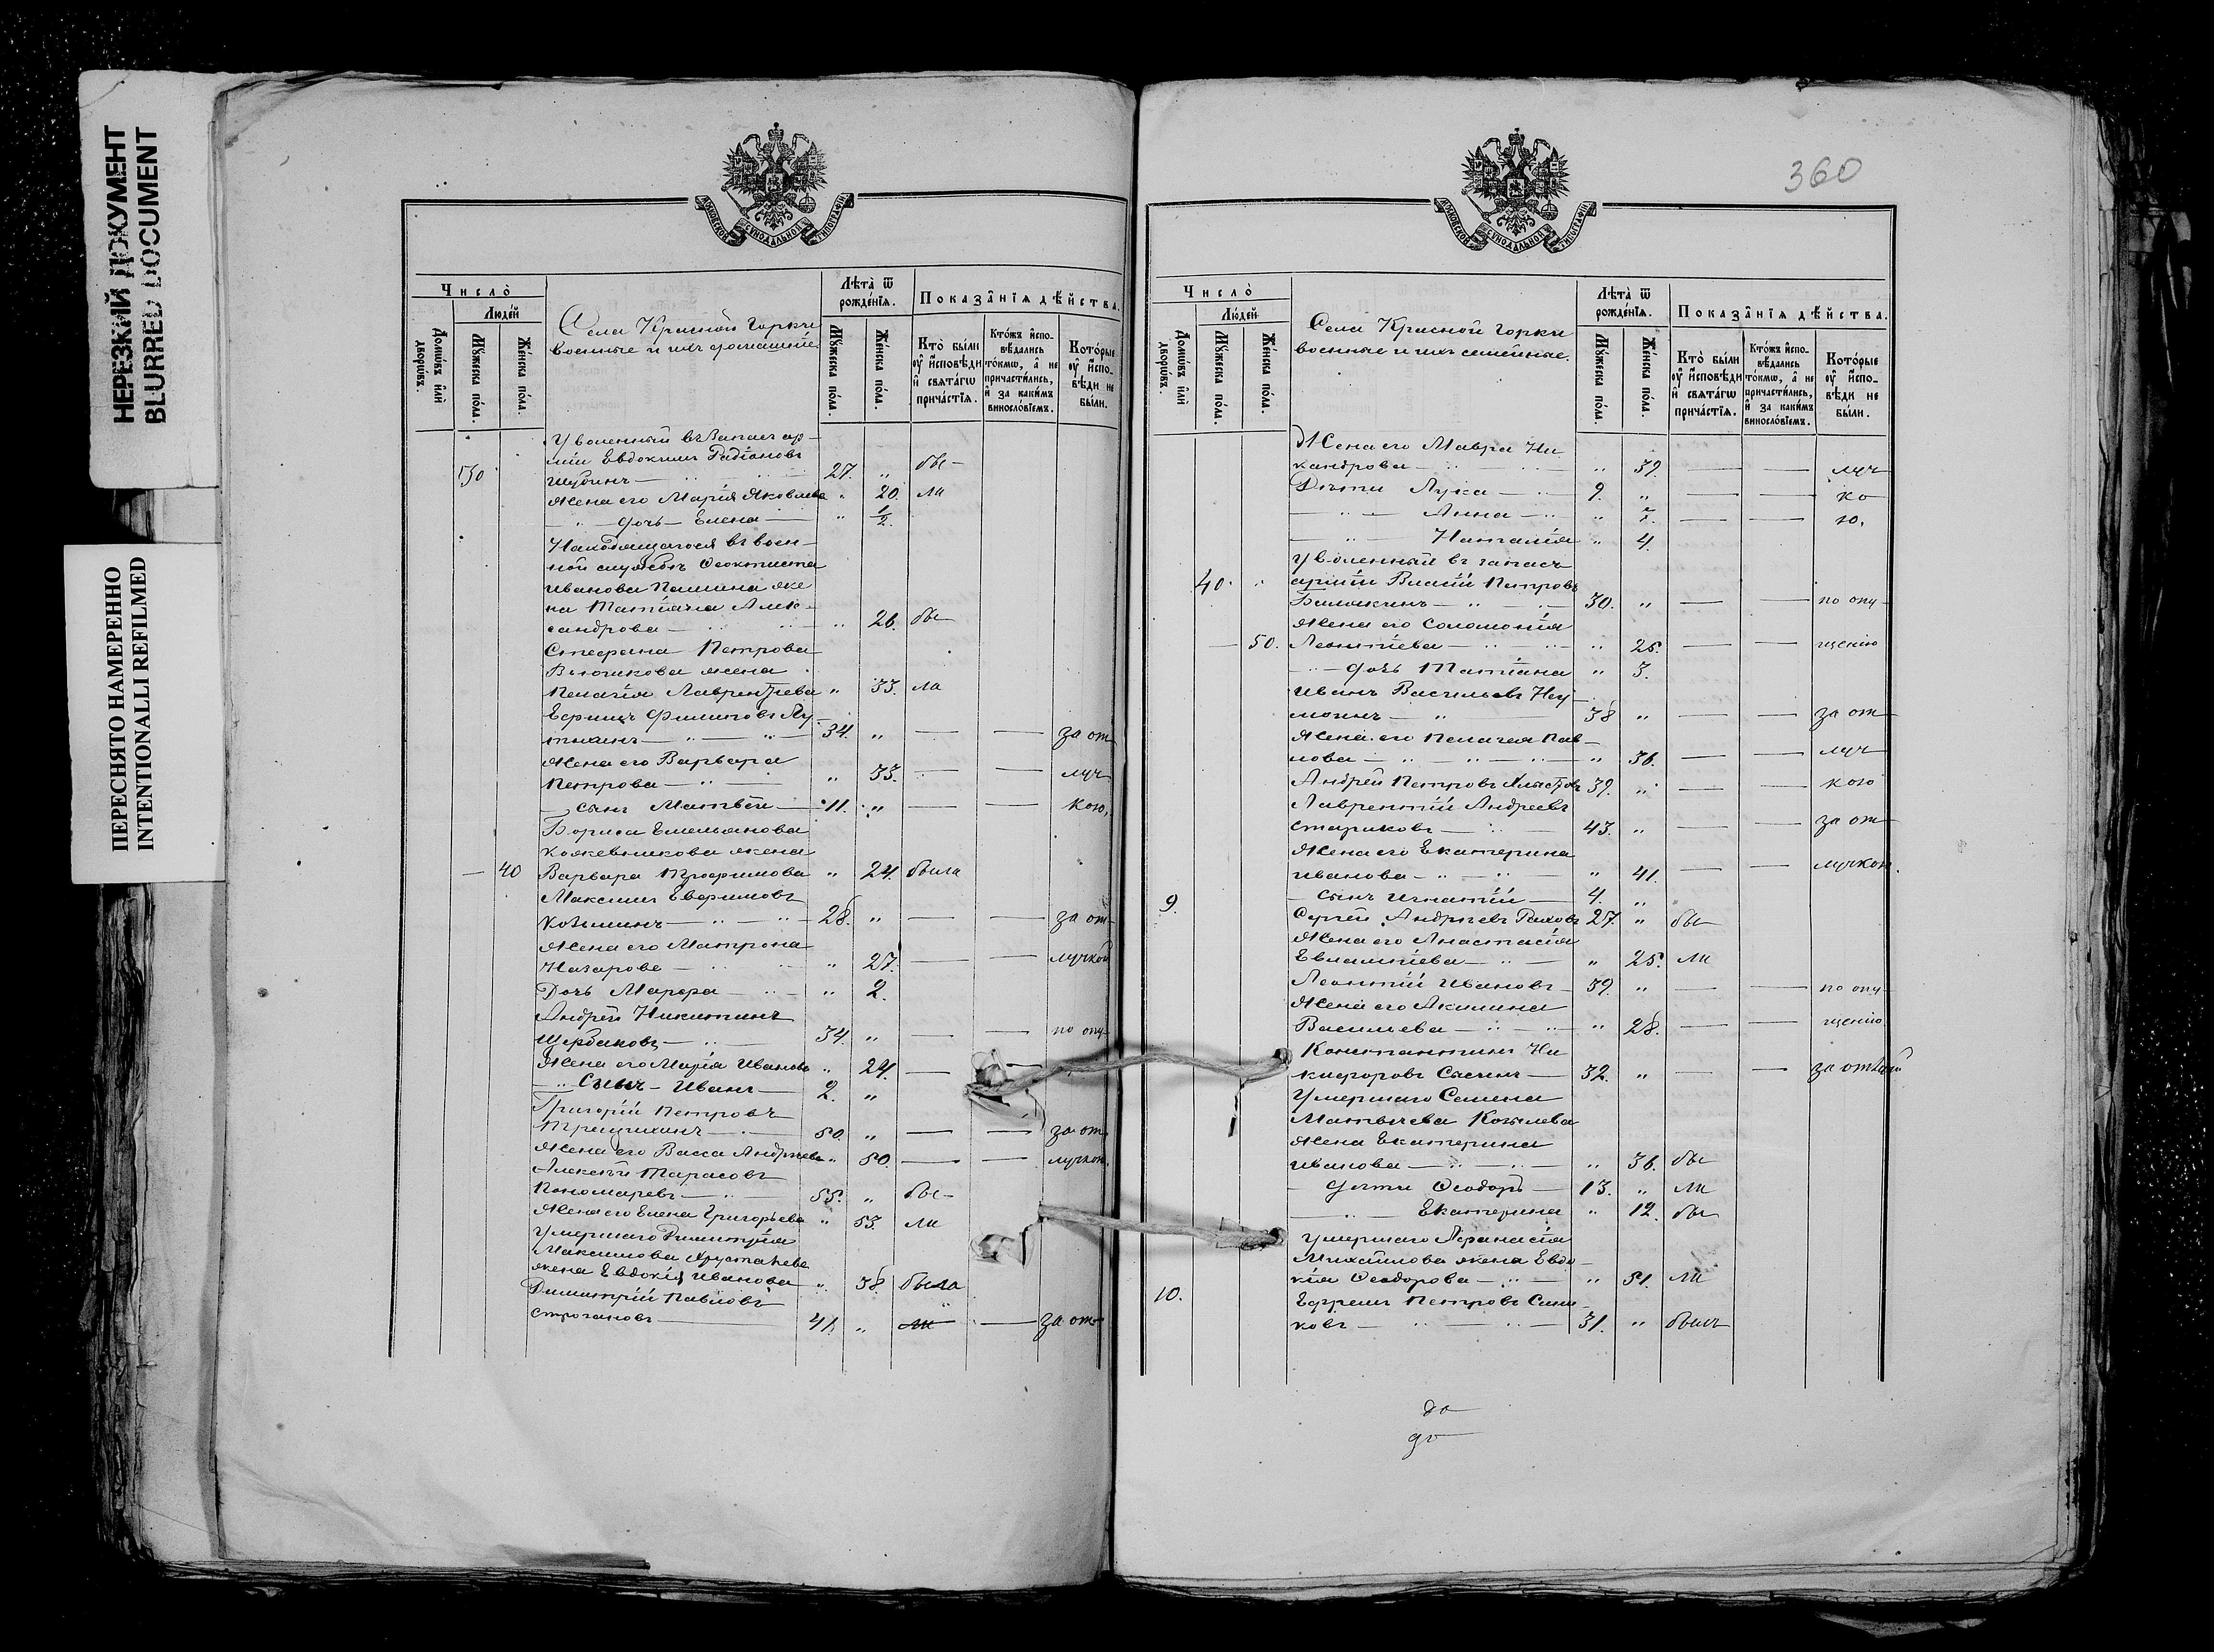 НЕРЕЗКИЙ ДОКУМЕНТ
BLURRED DOCUMENT
ПЕРЕСНЯТО НАМЕРЕННО
INTENTIONALLI REFILMED
МОСКОВСКОЙ СѴНОДАЛЬНОЙ ТИПОГРАФІИ
Число̀
Людей
Домѡ́въ и҆лѝ дворѡ́въ.
Мꙋ́жеска по́ла.
Же́нска по́ла.
Села Красной Горки
военные и ихъ домашніе.
Лѣта̀ ѿ рожде́нїѧ.
Мꙋ́жеска по́ла.
Же́нска по́ла.
Показа̑нїѧ дѣ́йства.
Кто̀ бы́ли ᲂу҆ и҆сповѣ́ди и҆ свѧта́гѡ прича́стїѧ.
Кто́жъ и҆спо-вѣ́дались то́кмѡ, а҆ не причасти́лись, и҆ за каки́мъ винослѡ́вїемъ.
Кото́рые ᲂу҆ и҆спо-вѣ́ди не бы́ли.
Уволенный въ запасъ ар-
міи Евдокимъ Радіоновъ
30 Шубинъ 27. " бы-
жена его Марія Яковлева " 20. ли
" дочь Елена " 1/2.
Находящагося въ воен-
ной службѣ Ѳеоктиста
Иванова Пашина же
на Татіана Алек-
сандрова " 26. бы
Стефана Петрова
жена
Пелагія Лаврентіева " 33. ла
Филиповъ
34. " за от
жена его Варвара
Петрова " 33. луч
сынъ Матвѣй 11. " кою,
Бориса Емельянова
Кожевникова жена
40 Варвара Трофимова " 24. была
Максимъ Ефимовъ
Козьминъ 28. " за от-
жена его Матрона
Назарова " 27. лучкой
Дочь Марфа " 2.
Андрей Никитинъ
Щербаковъ 34. " по опу-
жена его Марія Иванова " 24.
" Сынъ Иванъ 2. "
Григорій Петровъ
50. " за от
жена его Васса Андреева " 50. лучкою.
Алексѣй Тарасовъ
Пономаревъ 55. " бы-
жена его Елена Григорьева " 53. ли
Умершаго Димитрія
Максимова
жена Евдокія Иванова " 38. была
Димитрій Павловъ
Строгановъ 41. " ли за от
360
МОСКОВСКОЙ СѴНОДАЛЬНОЙ ТИПОГРАФІИ
Число̀
Людей
Домѡ́въ и҆лѝ дворѡ́въ.
Мꙋ́жеска по́ла.
Же́нска по́ла.
Села Красной Горки
военные и ихъ семейные.
Лѣта̀ ѿ рожде́нїѧ.
Мꙋ́жеска по́ла.
Же́нска по́ла.
Показа̑нїѧ дѣ́йства.
Кто̀ бы́ли ᲂу҆ и҆сповѣ́ди и҆ свѧта́гѡ прича́стїѧ.
Кто́жъ и҆спо-вѣ́дались то́кмѡ, а҆ не причасти́лись, и҆ за каки́мъ винослѡ́вїемъ.
Кото́рые ᲂу҆ и҆спо-вѣ́ди не бы́ли.
Жена его Мавра Ни
кандрова " 39. луч
Дѣти Лука 9. " ко
Анна " 7. ю.
Наталія " 4.
Уволенный въ запасъ
40. арміи Власій Петровъ
Балакинъ 30. " по опу-
жена его Соломонія
50. Леонтіева " 25. щенію
дочь Татіана " 3.
Иванъ Васильевъ Нау-
мкинъ 38 " за от
жена его Пелагея Пав-
лова " 36. луч
Андрей Петровъ 39. " кою
Лаврентій Андреевъ
Стариковъ 43. " за от
жена его Екатерина
Иванова " 41. лучкою.
9. сынъ Игнатій 4. "
Сергѣй Андреевъ 27. " бы
жена его Анастасія
Евлампіева " 25. ли
Леонтій Ивановъ 39. " по опу
жена его Акилина
Васильева " 28. щенію
Константинъ Ни
кифоровъ 32. " за отлуч
Умершаго Семена
Матвѣева Козлева
жена Екатерина
Иванова " 36. бы
дѣти Ѳеодоръ 13. " ли
" Екатерина " 12. бы
Умершаго Афанасія
Михайлова жена Евдо-
кія Ѳеодорова " 51. ли
10. Ефремъ Петровъ
ковъ 31. " былъ
до
до